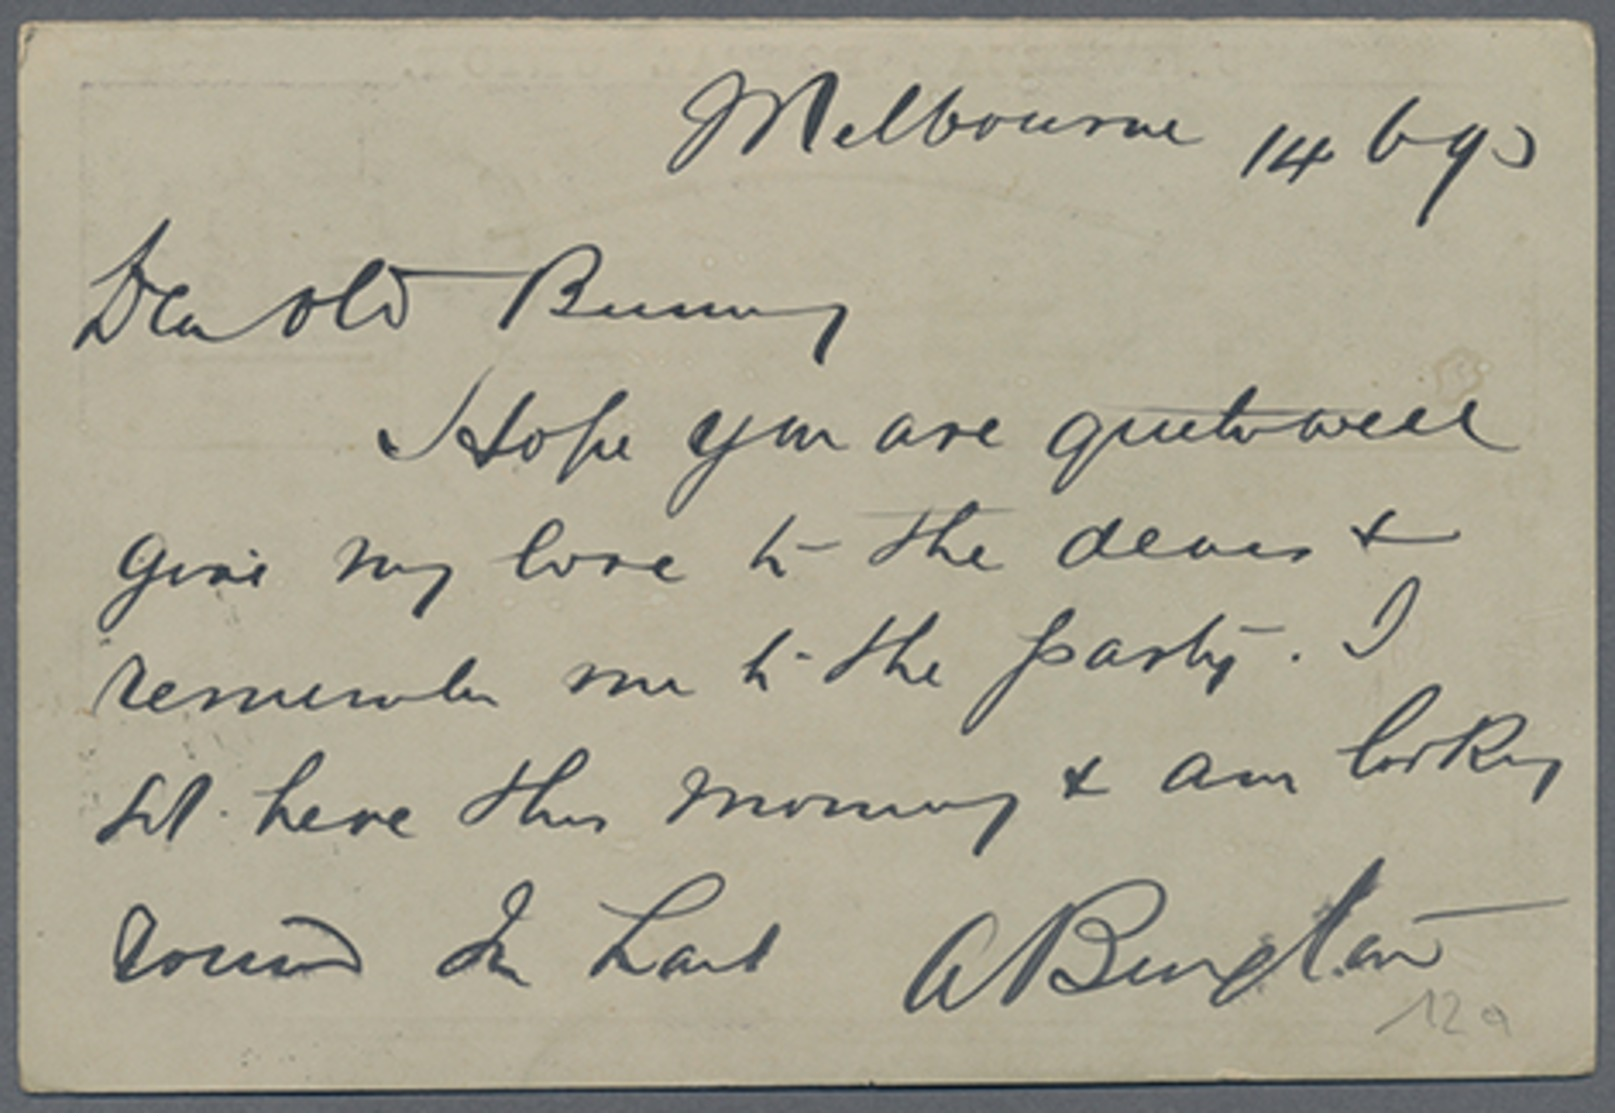 Melbourne 14 6 93
Dear old Bunny
I Hope you are quite well
Give my love to the dears &
remember me to the party. I
here this morning & am looking
round
12a